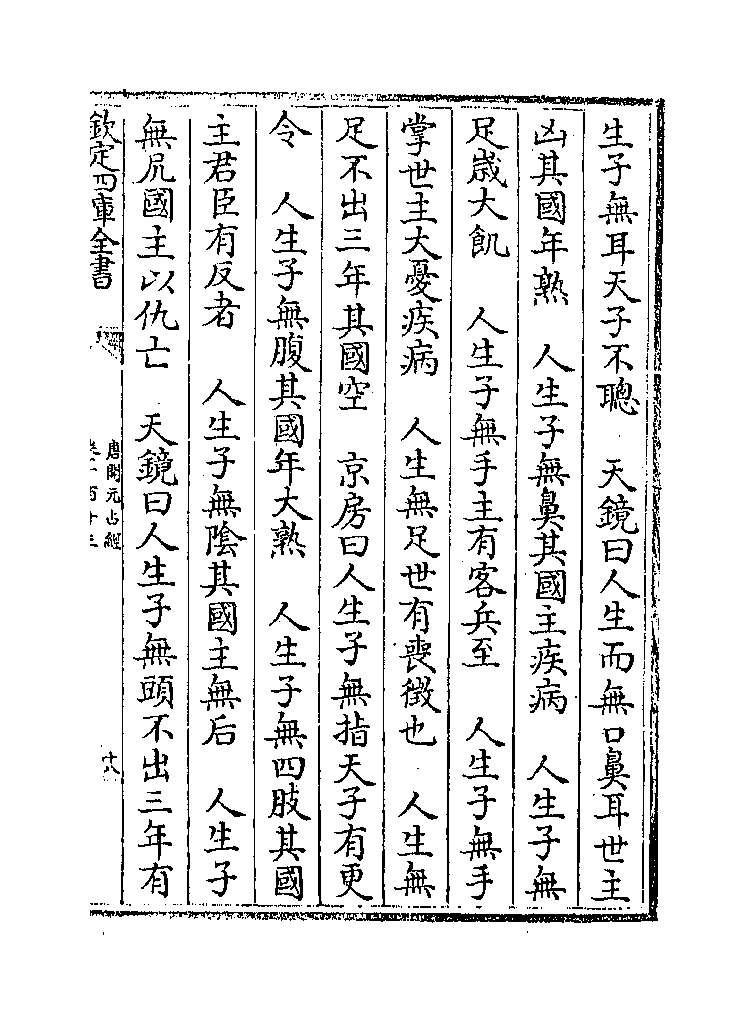 生子無耳天子不聰　天鏡曰人生而無口鼻耳世主
凶其國年熟　人生子無鼻其國主疾病　人生子無
足嵗大飢　人生子無手主有客兵至　人生子無手
掌世主大憂疾病　人生無足世有喪徵也　人生無
足不出三年其國空　京房曰人生子無指天子有更
令　人生子無腹其國年大熟　人生子無四肢其國
主君臣有反者　人生子無陰其國主無后　人生子
無尻國主以仇亡　天鏡曰人生子無頭不出三年有
欽定四庫全書
唐開元占經
卷一百十三
十八